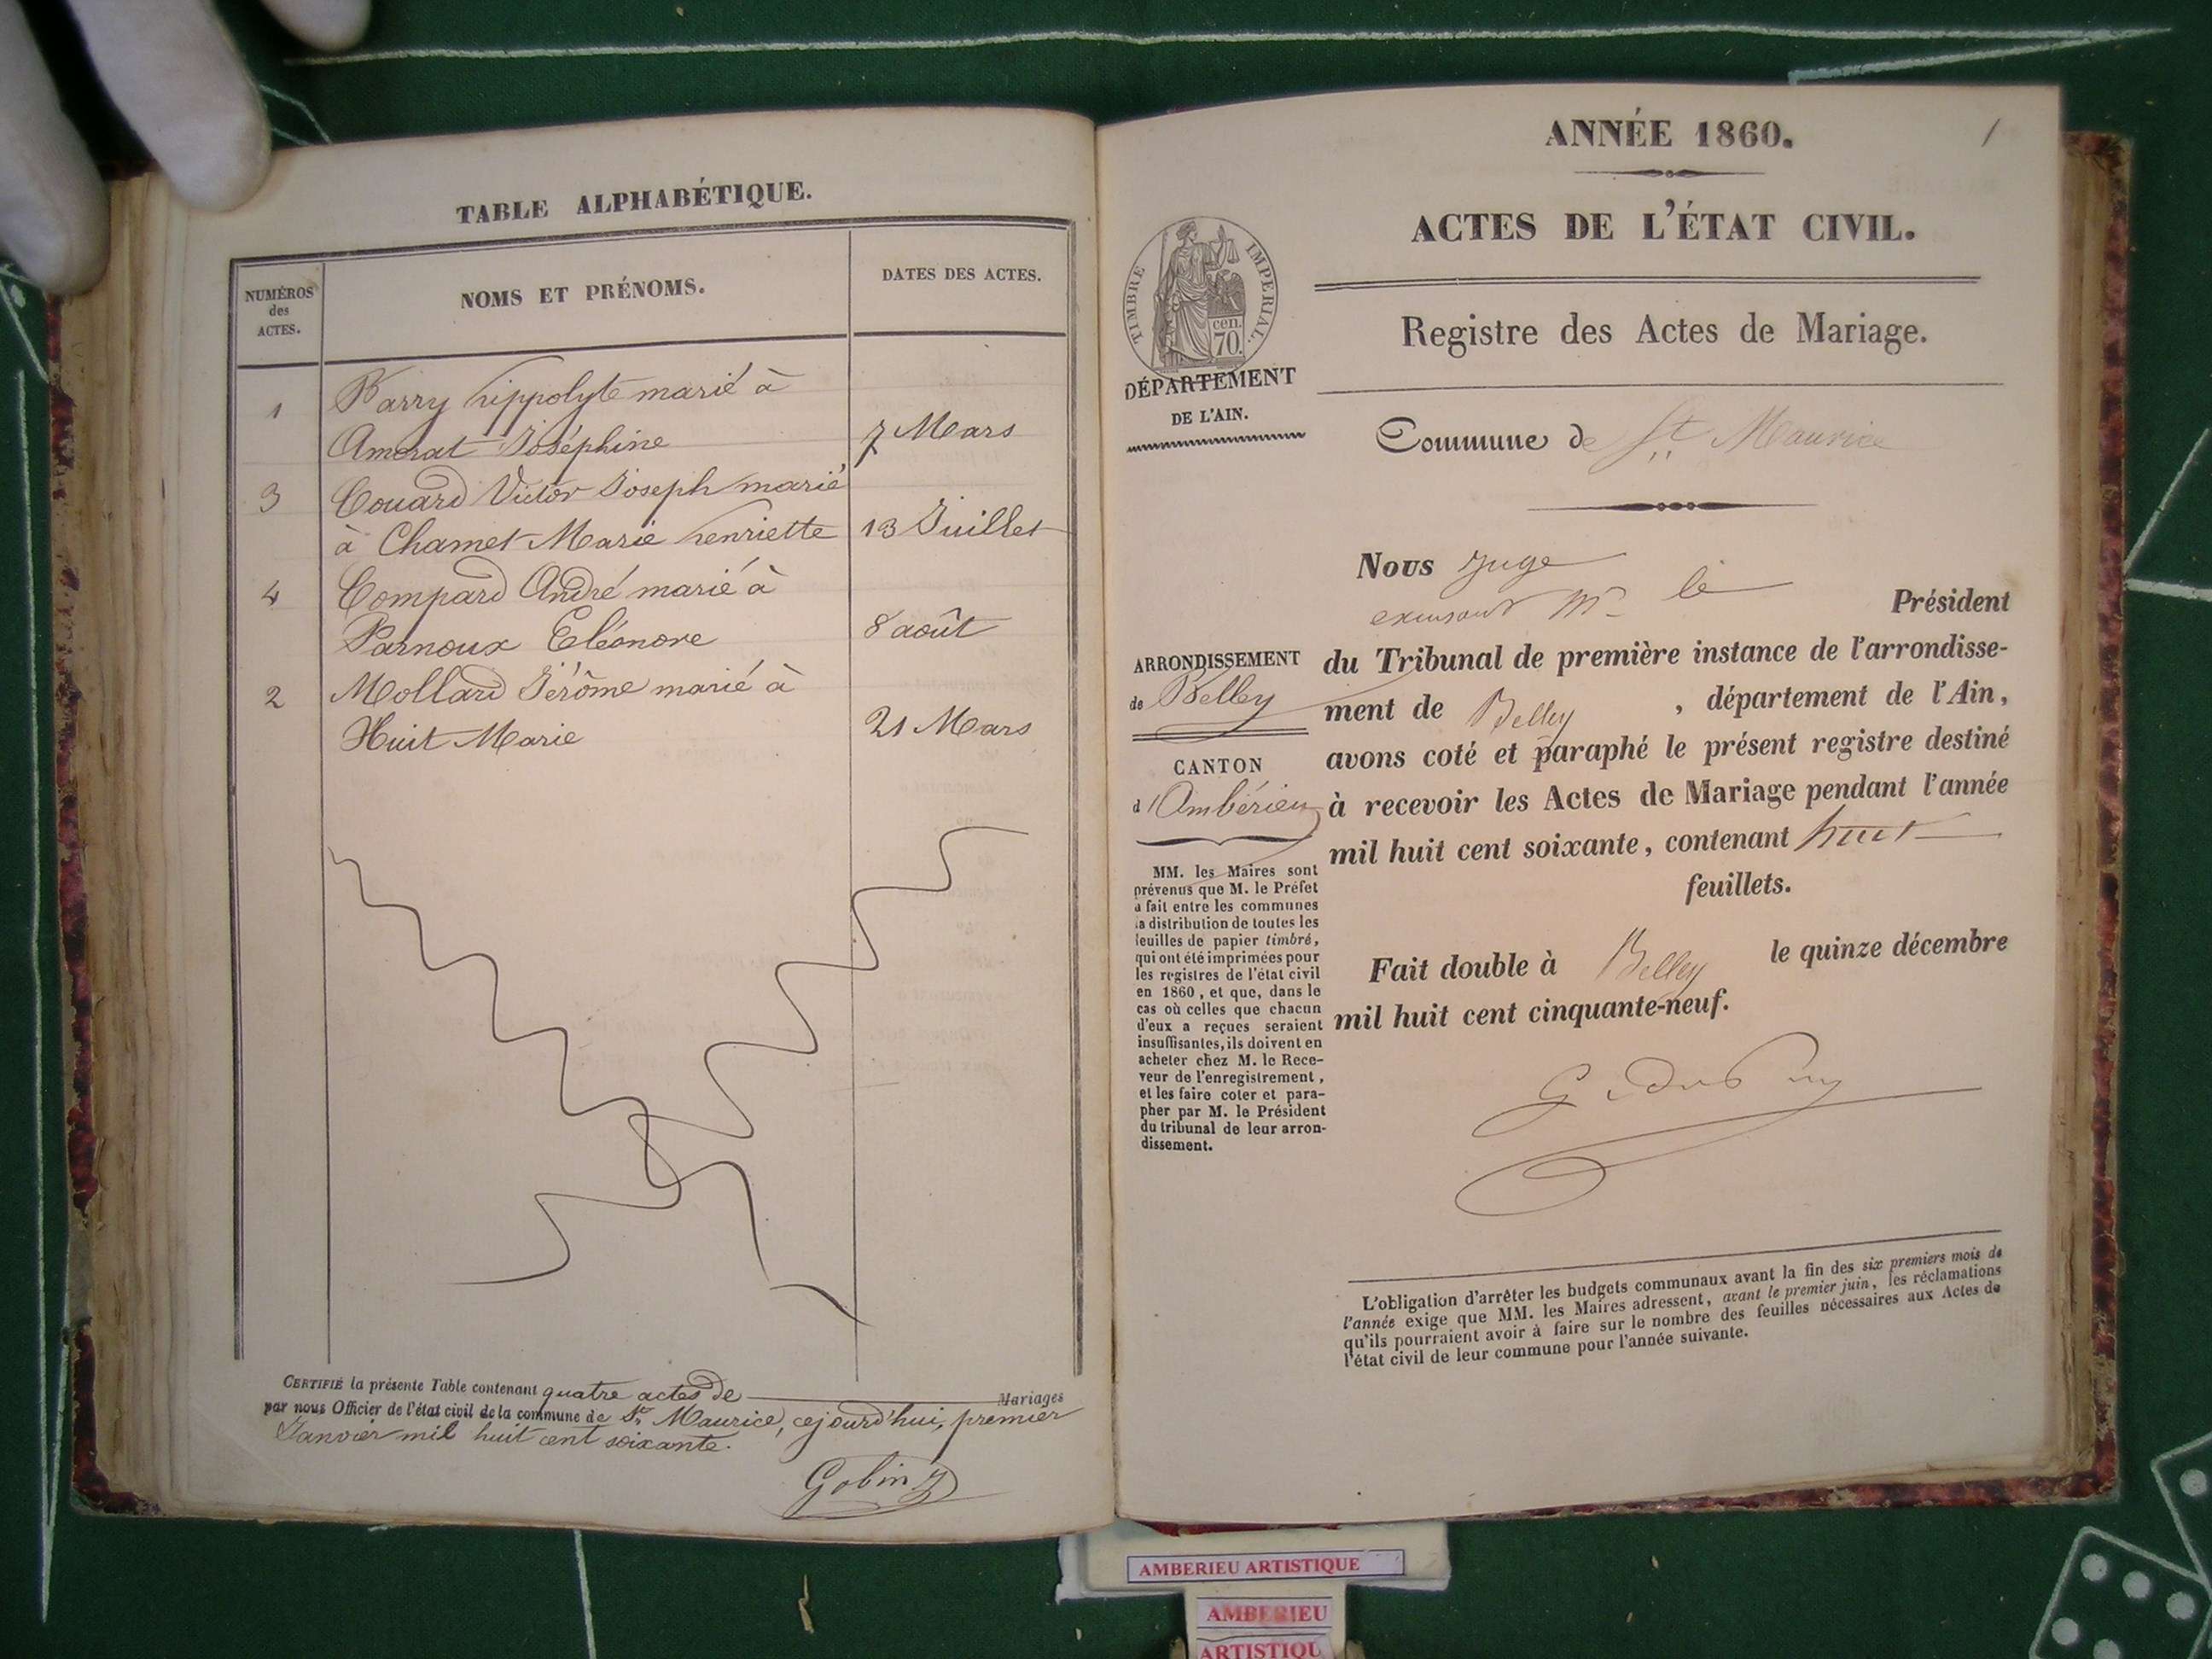 TABLE ALPHABÉTIQUE.
NUMÉROS
des
ACTES.
NOMS ET PRÉNOMS.
DATES DES ACTES.
1
Barry hippolyte marié à
Amerat Joséphine
7 Mars
3
Couard Victor Joseph marié
à Chamet Marie henriette
13 Juillet
4
Compard André marié à
Parnoux Eléonore
8 août
2
Mollard Jérôme marié à
Huit Marie
21 Mars
CERTIFIÉ la présente Table contenant quatre actes de Mariages
par nous Officier de l'état civil de la commune de St Maurice, cejourd'hui, premier
Janvier mil huit cent soixante.
Gobin
ANNÉE 1860.
1
ACTES DE L'ÉTAT CIVIL.
TIMBRE IMPERIAL.
cen.
70.
DÉPARTEMENT
DE L'AIN.
Registre des Actes de Mariage.
Commune de St Maurice
ARRONDISSEMENT
de Belley
CANTON
d'Ambérieu
MM. les Maires sont
prévenus que M. le Préfet
a fait entre les communes
la distribution de toutes les
feuilles de papier timbré,
qui ont été imprimées pour
les registres de l'état civil
en 1860, et que, dans le
cas où celles que chacun
d'eux a reçues seraient
insuffisantes, ils doivent en
acheter chez M. le Rece-
veur de l'enregistrement,
et les faire coter et para-
pher par M. le Président
du tribunal de leur arron-
dissement.
Nous Juge
Mr le Président
du Tribunal de première instance de l'arrondisse-
ment de Belley, département de l'Ain,
avons coté et paraphé le présent registre destiné
à recevoir les Actes de Mariage pendant l'année
mil huit cent soixante, contenant huit
feuillets.
Fait double à Belley le quinze décembre
mil huit cent cinquante-neuf.
L'obligation d'arrêter les budgets communaux avant la fin des six premiers mois de
l'année exige que MM. les Maires adressent, avant le premier juin, les réclamations
qu'ils pourraient avoir à faire sur le nombre des feuilles nécessaires aux Actes de
l'état civil de leur commune pour l'année suivante.
AMBERIEU ARTISTIQUE
AMBERIEU
ARTISTIQU